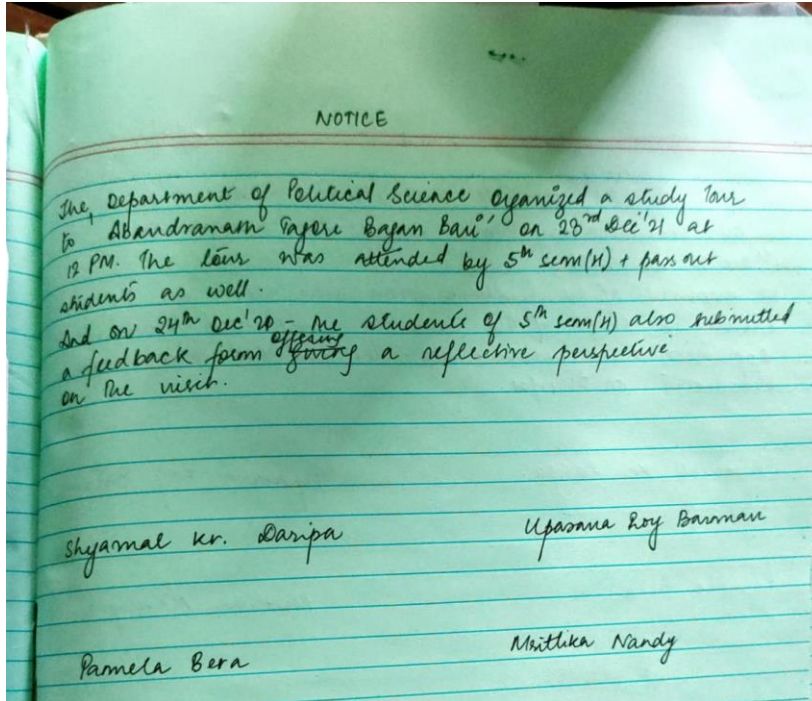 NOTICE
The Department of Political Science organized a study tour
to "Abandranath Tagore Bagan Bari" on 23rd Dec'21 at
12 PM. The tour was attended by 5th sem(H) + pass out
students as well.
And on 24th Dec'20 - the students of 5th sem(H) also submitted
a feedback form offering a reflective perspective
on the visit.
Shyamal Kr. Daripa Upasana Roy Barman
Pamela Bera Mrittika Nandy